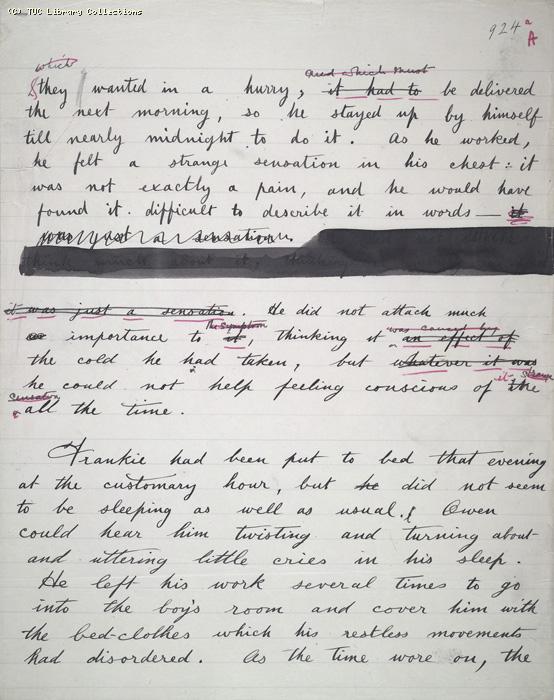 (C) TUC Library Collections
924 a
A
which and which must
they wanted in a hurry, it had to be delivered
the next morning, so he stayed up by himself
till nearly midnight to do it. As he worked,
he felt a strange sensation in his chest: it
was not exactly a pain, and he would have
found it difficult to describe it in words — it
was just a sensation.
much about it,
it was just a sensation. He did not attach much
the symptom was caused by
importance to it, thinking it an effect of
the cold he had taken, but whatever it was
it strange
he could not help feeling conscious of the
sensation
all the time.
Frankie had been put to bed that evening
at the customary hour, but he did not seem
to be sleeping as well as usual. Owen
could hear him twisting and turning about
and uttering little cries in his sleep.
He left his work several times to go
into the boy's room and cover him with
the bed-clothes which his restless movements
had disordered. As the time wore on, the